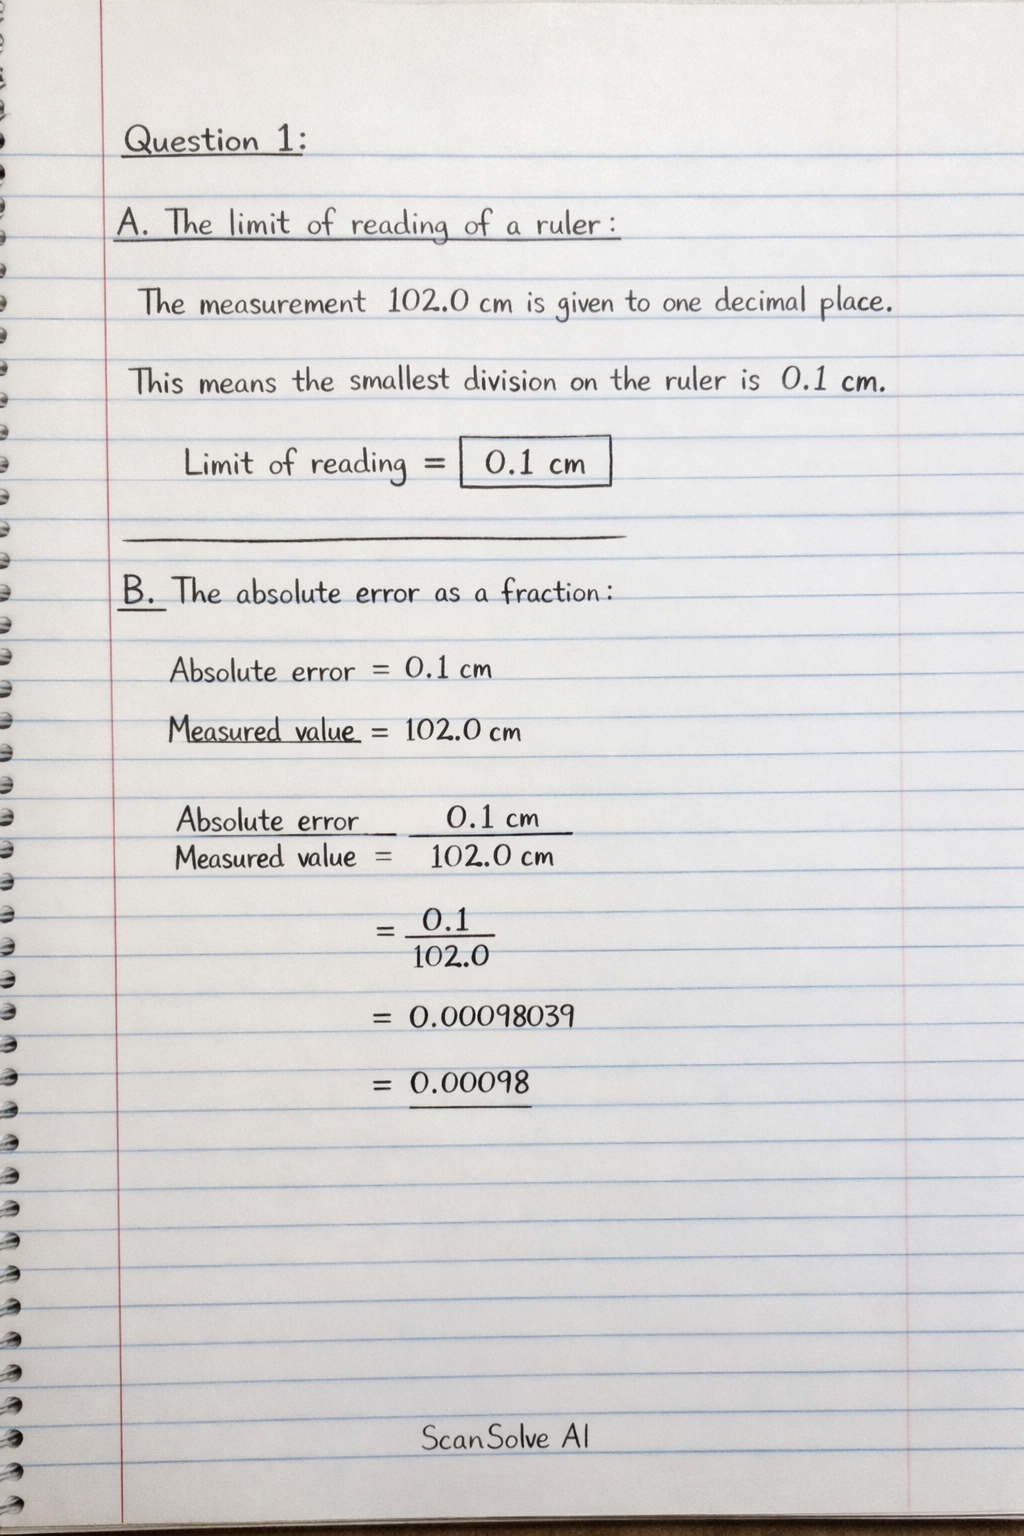 Question 1:
A. The limit of reading of a ruler:
The measurement 102.0 cm is given to one decimal place.
This means the smallest division on the ruler is 0.1 cm.
Limit of reading = 0.1 cm
B. The absolute error as a fraction:
Absolute error = 0.1 cm
Measured value = 102.0 cm
Absolute error 0.1 cm
Measured value = 102.0 cm
= 0.1
102.0
= 0.00098039
= 0.00098
ScanSolve AI